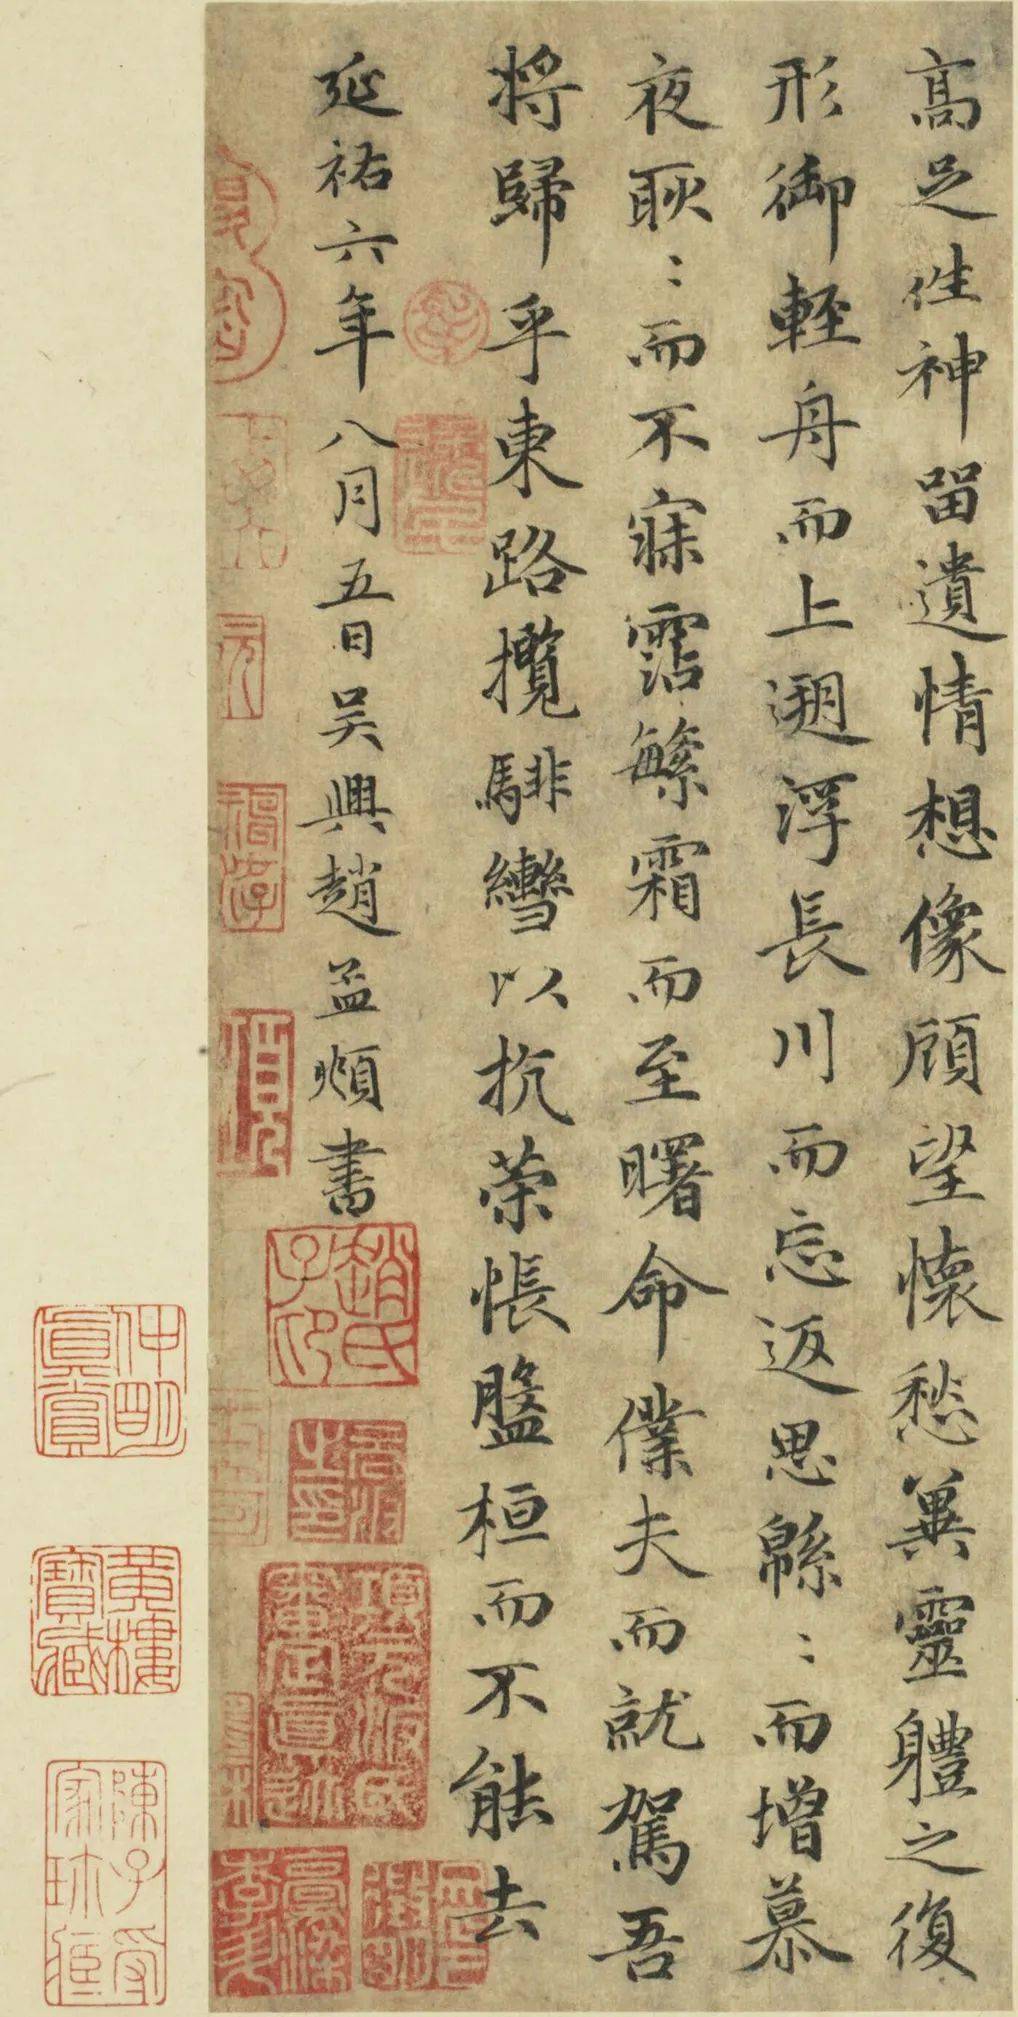 高足往神留遺情想像顧望懷愁冀靈體之復
形御輕舟而上遡浮長川而忘返思緜〻而增慕
夜耿〻而不寐霑繁霜而至曙命僕夫而就駕吾
將歸乎東路攬騑轡以抗䇿悵盤桓而不能去
延祐六年八月五日吴興趙孟頫書
趙氏子昂
項元汴氏審定真跡
仲明真賞
黃樓寶藏
陳子受家珍藏